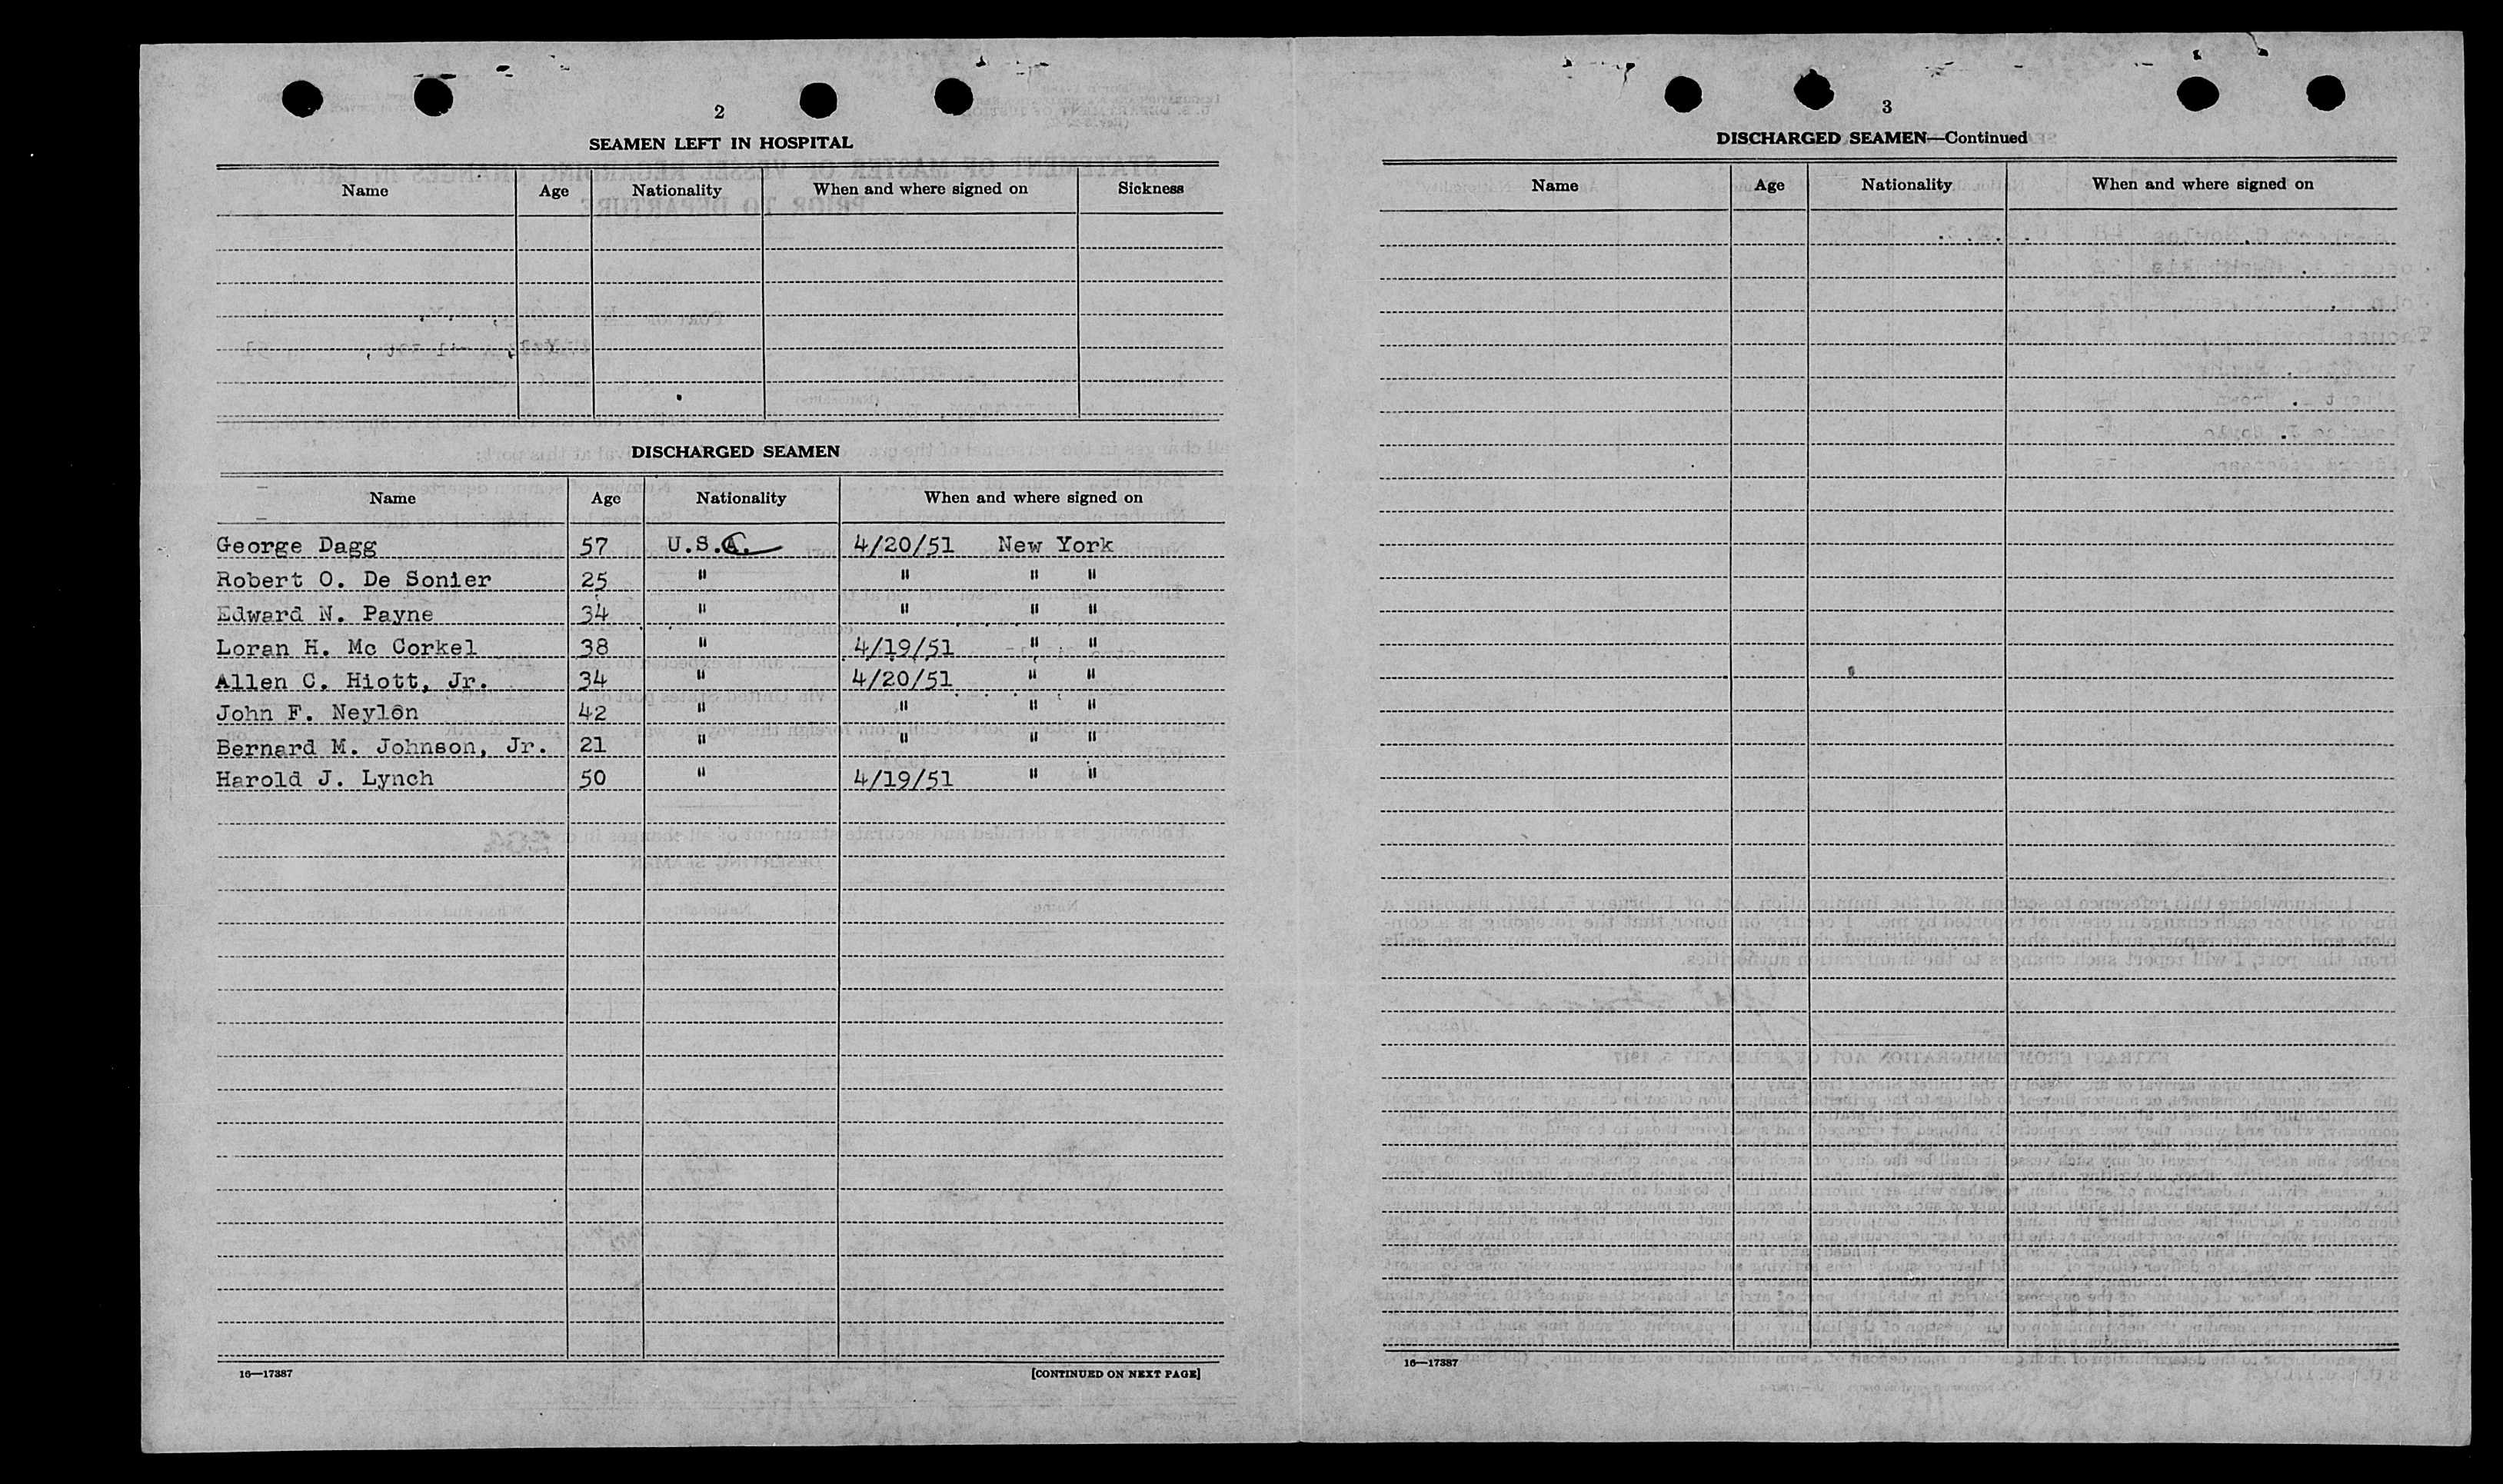 2
SEAMEN LEFT IN HOSPITAL
Name Age Nationality When and where signed on Sickness
DISCHARGED SEAMEN
Name Age Nationality When and where signed on
George Dagg 57 U.S.A. 4/20/51 New York
Robert O. De Sonier 25 " " " "
Edward N. Payne 34 " " " "
Loran H. Mc Corkel 38 " 4/19/51 " "
Allen C. Hiott, Jr. 34 " 4/20/51 " "
John F. Neylon 42 " " " "
Bernard M. Johnson, Jr. 21 " " " "
Harold J. Lynch 50 " 4/19/51 " "
16—17387 [CONTINUED ON NEXT PAGE]
3
DISCHARGED SEAMEN—Continued
Name Age Nationality When and where signed on
16—17387